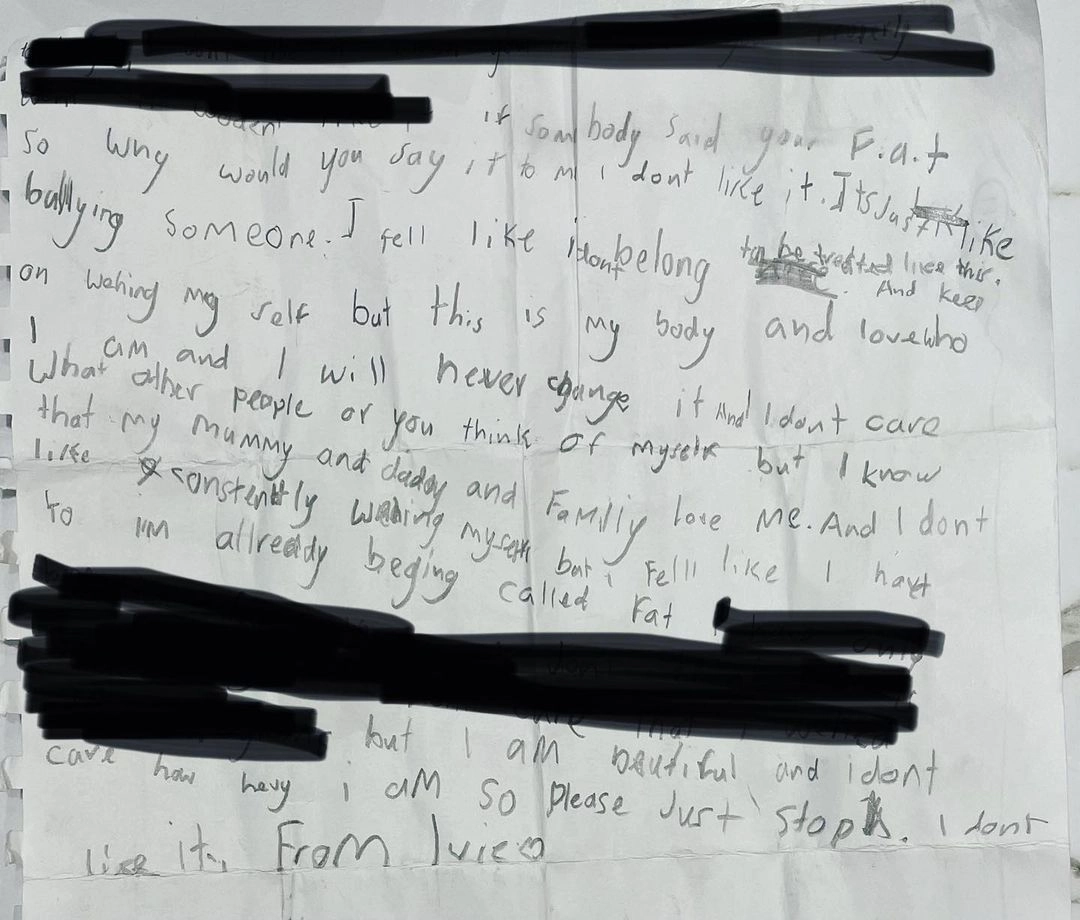 if somebody said your F.a.t
so why would you say it to me i dont like it. Its Just like
bullying someone. I fell like i dont belong to be treated like this.
And keep
on wehing my self but this is my body and love who
I am and I will never change it And I dont care
What other people or you think of myself but I know
that my mummy and daddy and Family love me. And I dont
like constently wehing myself but i Felll like I havt
to i'm allready beging called Fat
but I am beautiful and i dont
care how hevy i am so please Just stop. I dont
like it. From Ivie